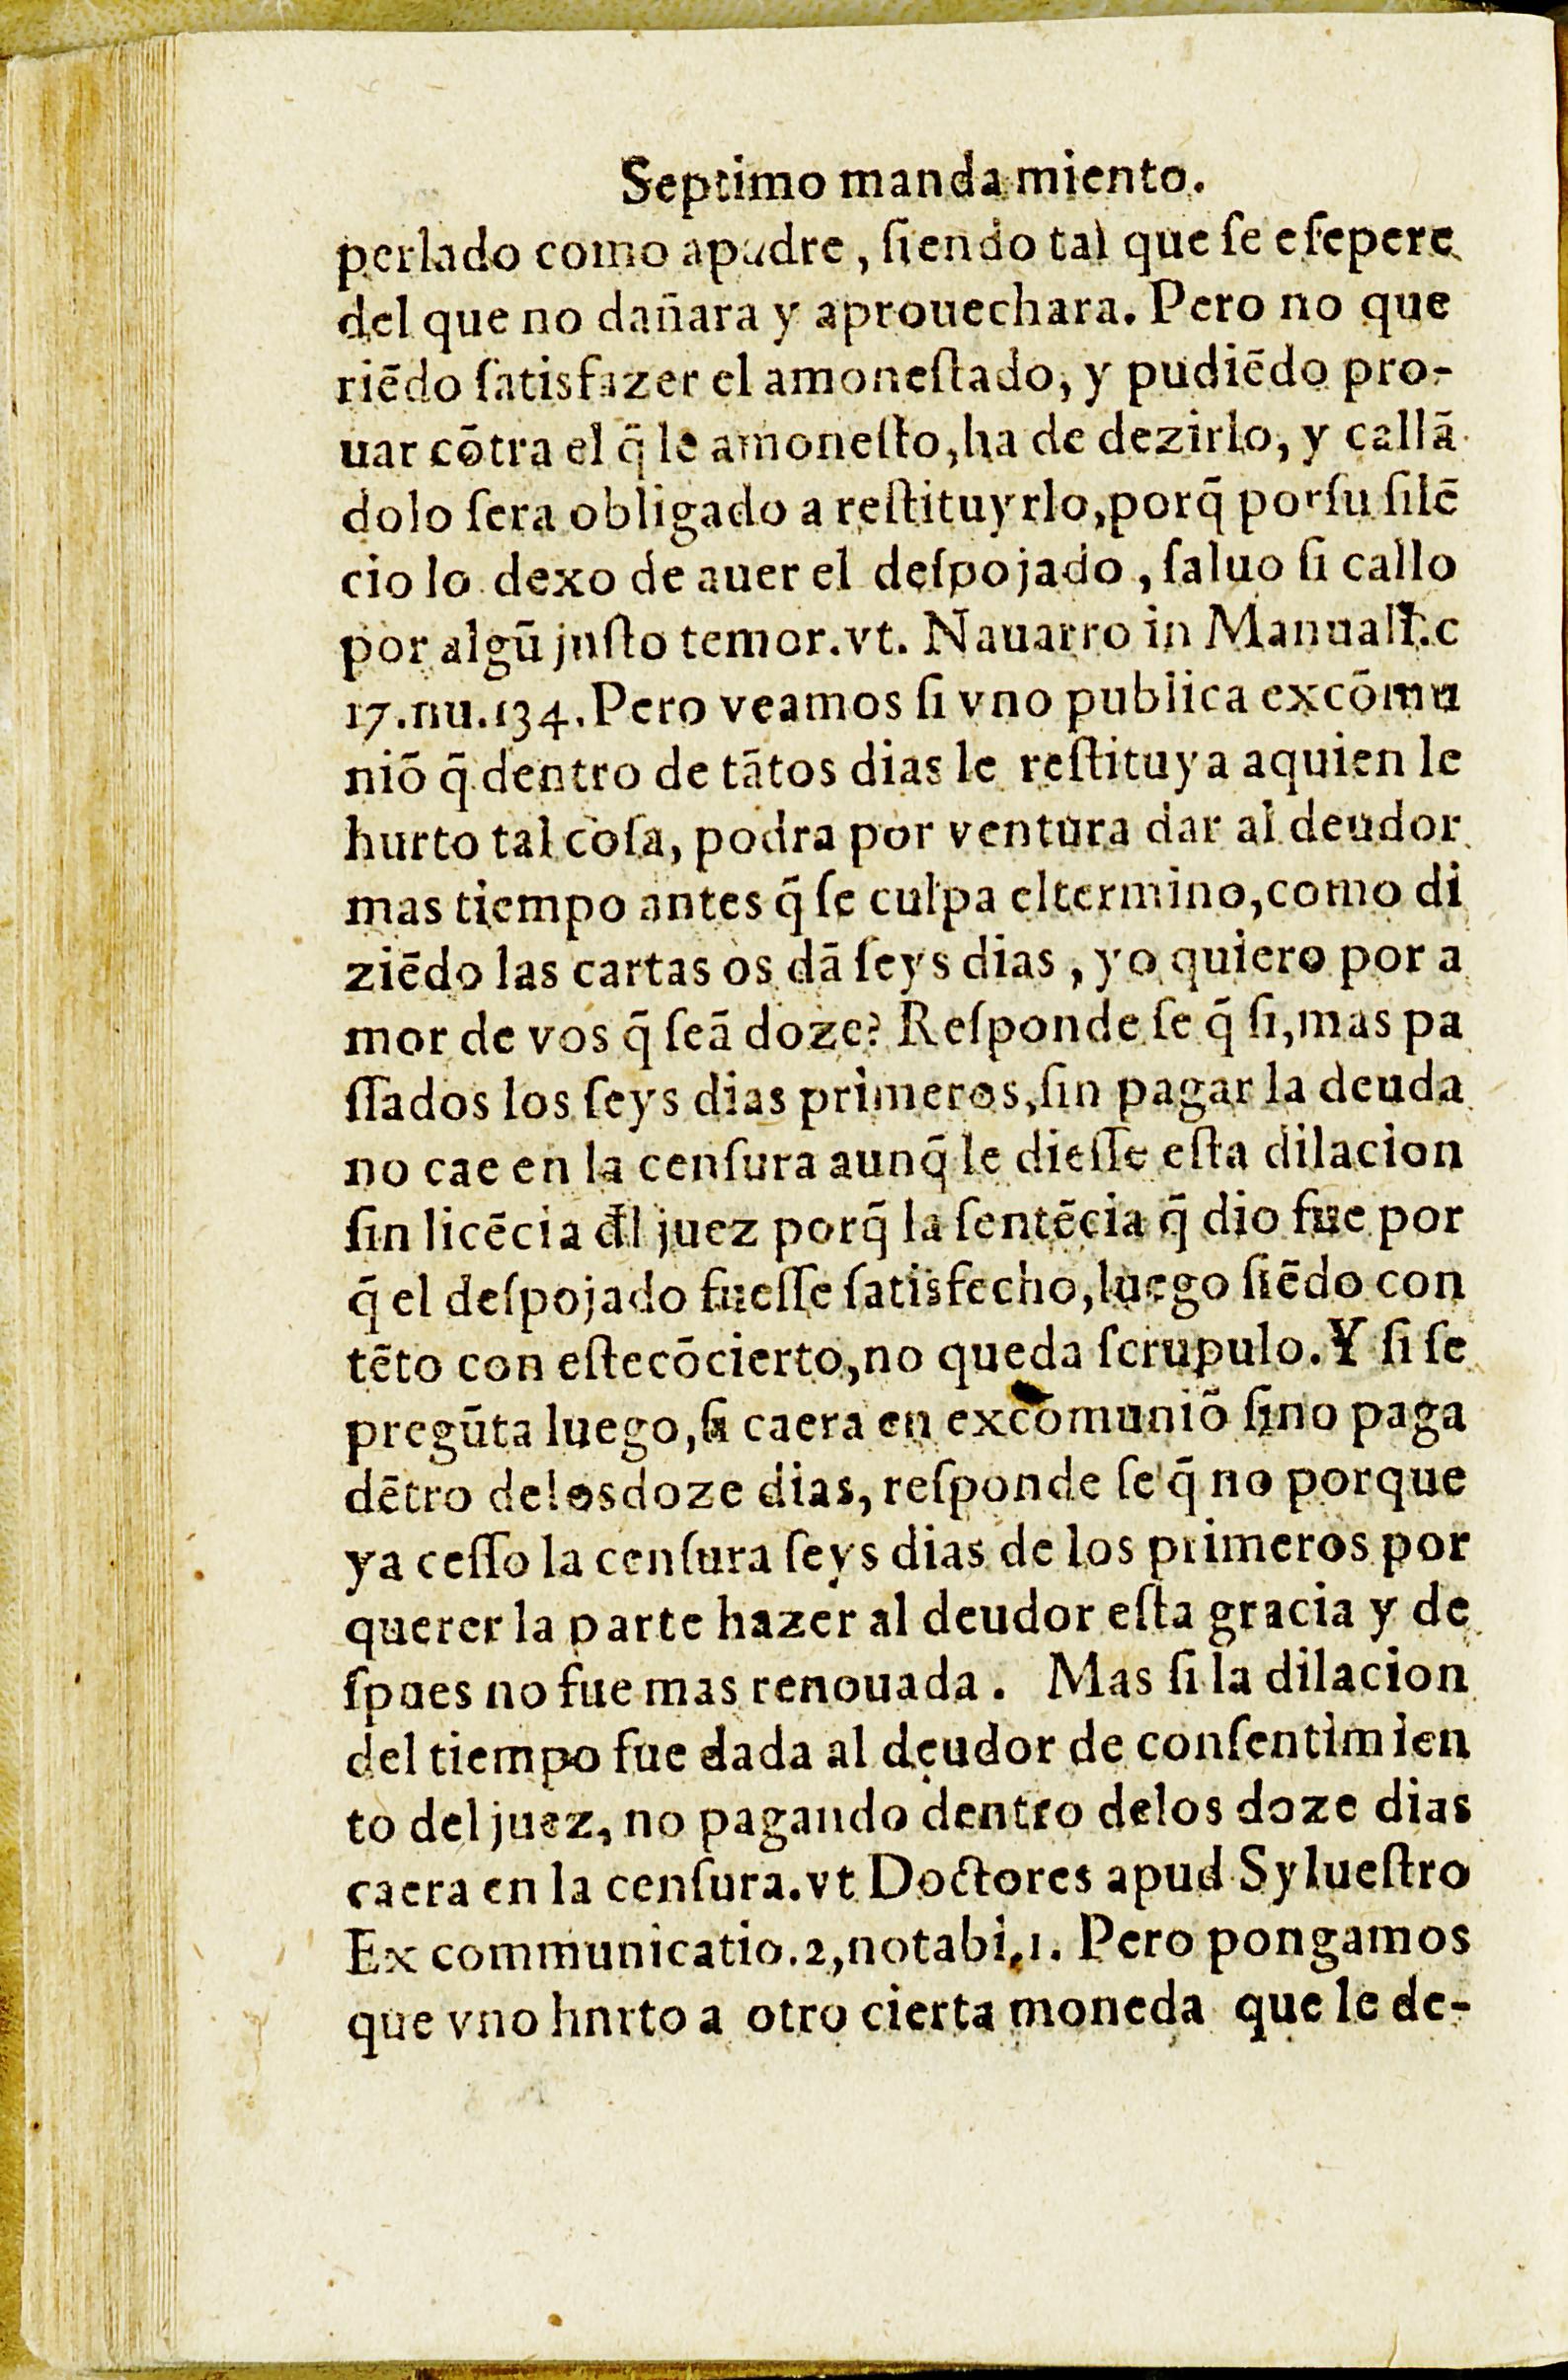 Septimo manda miento.
perlado como apadre, ſiendo tal que ſe eſepere
del que no dañara y aprouechara. Pero no que
riẽdo ſatisfazer el amoneſtado, y pudiẽdo pro-
uar cõtra el q̃ le amoneſto, ha de dezirlo, y callã
dolo ſera obligado a reſtituyrlo, porq̃ porſu ſilẽ
cio lo dexo de auer el deſpojado, ſaluo ſi callo
por algũ juſto temor. vt. Nauarro in Manuali. c
17. nu. 134. Pero veamos ſi vno publica excõmu
niõ q̃ dentro de tãtos dias le reſtituya aquien le
hurto tal coſa, podra por ventura dar al deudor
mas tiempo antes q̃ ſe culpa eltermino, como di
ziẽdo las cartas os dã ſeys dias, yo quiero por a
mor de vos q̃ ſeã doze? Reſponde ſe q̃ ſi, mas pa
ſſados los ſeys dias primeros, ſin pagar la deuda
no cae en la cenſura aunq̃ le dieſſe eſta dilacion
ſin licẽcia đl juez porq̃ la ſentẽcia q̃ dio fue por
q̃ el deſpojado fueſſe ſatisfecho, luego ſiẽdo con
tẽto con eſtecõcierto, no queda ſcrupulo. Y ſi ſe
pregũta luego, ſi caera en excomuniõ ſino paga
dẽtro delosdoze dias, reſponde ſe q̃ no porque
ya ceſſo la cenſura ſeys dias de los primeros por
querer la parte hazer al deudor eſta gracia y de
ſpues no fue mas renouada. Mas ſi la dilacion
del tiempo fue dada al deudor de conſentimien
to del juez, no pagando dentro delos doze dias
caera en la cenſura. vt Doctores apud Sylueſtro
Ex communicatio. 2, notabi, 1. Pero pongamos
que vno hnrto a otro cierta moneda que le de-